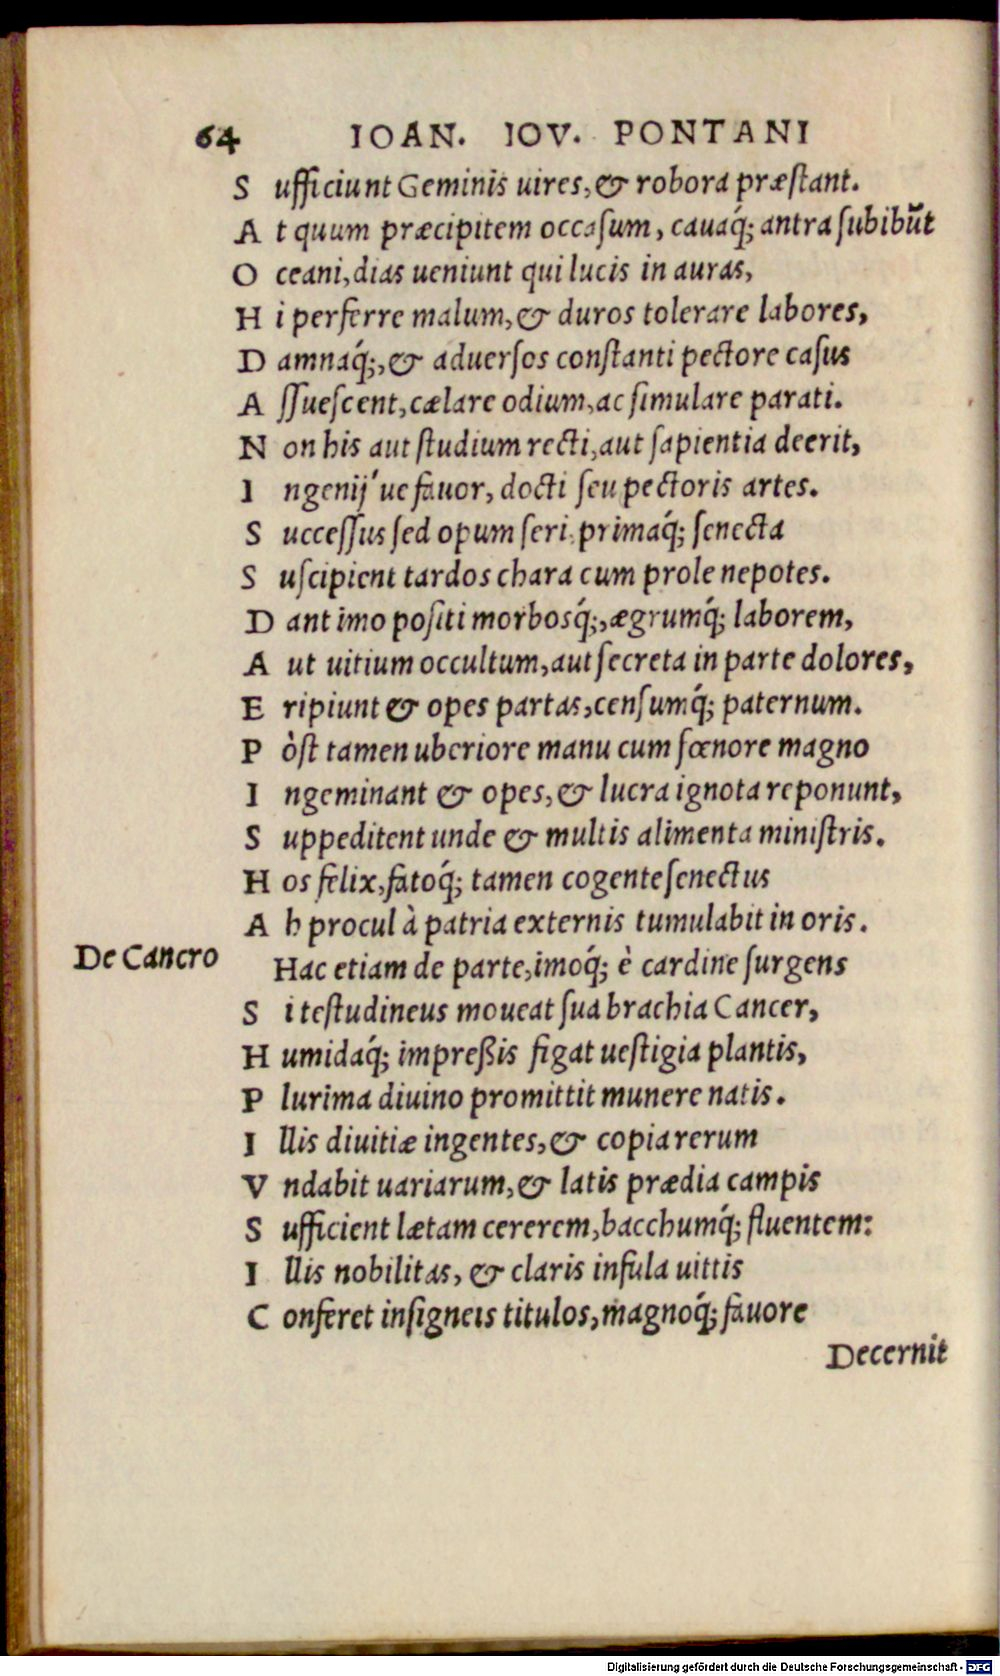 64 IOAN. IOV. PONTANI
S ufficiunt Geminis uires, & robora præstant.
A t quum præcipitem occasum, cauaq́; antra subibūt
O ceani, dias ueniunt qui lucis in auras,
H i perferre malum, & duros tolerare labores,
D amnaq́;, & aduersos constanti pectore casus
A ssuescent, cælare odium, ac simulare parati.
N on his aut studium recti, aut sapientia deerit,
I ngenij' ue fauor, docti seu pectoris artes.
S uccessus sed opum seri, primaq́; senecta
S uscipient tardos chara cum prole nepotes.
D ant imo positi morbosq́;, ægrumq́; laborem,
A ut uitium occultum, aut secreta in parte dolores,
E ripiunt & opes partas, censumq́; paternum.
P òst tamen uberiore manu cum fœnore magno
I ngeminant & opes, & lucra ignota reponunt,
S uppeditent unde & multis alimenta ministris.
H os felix, fatoq́; tamen cogente senectus
A h procul à patria externis tumulabit in oris.
De Cancro
Hac etiam de parte, imoq́; è cardine surgens
S i testudineus moueat sua brachia Cancer,
H umidaq́; impreßis figat uestigia plantis,
P lurima diuino promittit munere natis.
I llis diuitiæ ingentes, & copia rerum
V ndabit uariarum, & latis prædia campis
S ufficient lætam cererem, bacchumq́; fluentem:
I llis nobilitas, & claris infula uittis
C onferet insigneis titulos, magnoq́; fauore
Decernit
Digitalisierung gefördert durch die Deutsche Forschungsgemeinschaft - DFG